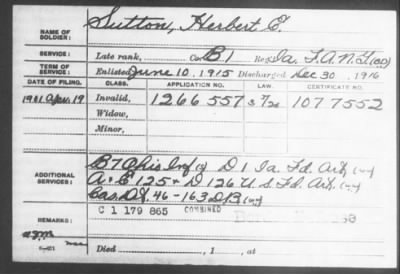 NAME OF SOLDIER: Sutton, Herbert E.
SERVICE: Late rank, Co. B 1 Reg. Ia. F.A.N.G.
TERM OF SERVICE: Enlisted June 10, 1915 Discharged Dec 30, 1916
DATE OF FILING. CLASS. APPLICATION NO. LAW. CERTIFICATE NO.
Apr. 19 Invalid, 1266 557 1077552
Widow,
Minor,
ADDITIONAL SERVICES: B 7 Ohio Inf D 1 Ia. Fd. Art.
A + E 125 + D 126 U.S. Fd. Art.
Cas. Det. 46 - 163 D.B.
REMARKS: C 1 179 865 COMBINED
Died , 1 , at